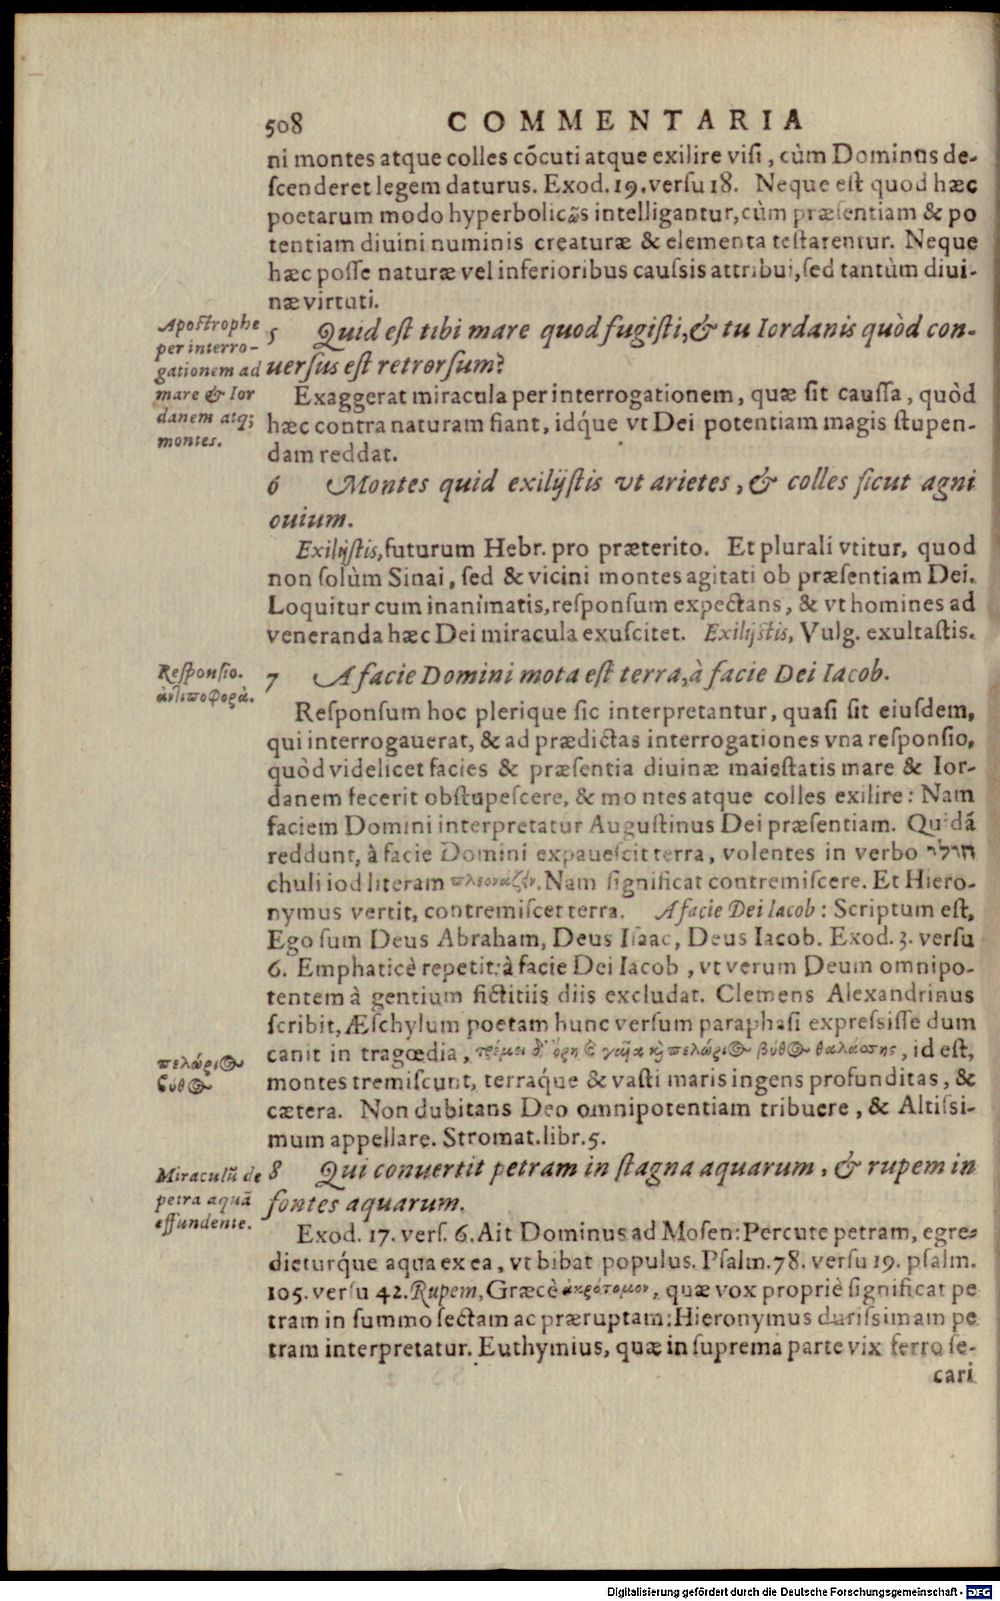 508 COMMENTARIA
ni montes atque colles cōcuti atque exilire visi, cùm Dominus de-
scenderet legem daturus. Exod. 19. versu 18. Neque est quod hæc
poetarum modo hyperbolicῶs intelligantur, cùm præsentiam & po
tentiam diuini numinis creaturæ & elementa testarentur. Neque
hæc posse naturæ vel inferioribus caussis attribui, sed tantùm diui-
næ virtuti.
Apostrophe
per interro-
gationem ad
mare & Ior
danem atq;
montes.
5 Quid est tibi mare quod fugisti, & tu Iordanis quòd con-
uersus est retrorsum?
Exaggerat miracula per interrogationem, quæ sit caussa, quòd
hæc contra naturam fiant, idq́ue vt Dei potentiam magis stupen-
dam reddat.
6 Montes quid exilijstis vt arietes, & colles sicut agni
ouium.
Exilijstis, futurum Hebr. pro præterito. Et plurali vtitur, quod
non solùm Sinai, sed & vicini montes agitati ob præsentiam Dei.
Loquitur cum inanimatis, responsum expectans, & vt homines ad
veneranda hæc Dei miracula exuscitet. Exilijstis, Vulg. exultastis.
Responsio.
ἀντιποφορὰ.
7 A facie Domini mota est terra, à facie Dei Iacob.
Responsum hoc plerique sic interpretantur, quasi sit eiusdem,
qui interrogauerat, & ad prædictas interrogationes vna responsio,
quòd videlicet facies & præsentia diuinæ maiestatis mare & Ior-
danem fecerit obstupescere, & montes atque colles exilire: Nam
faciem Domini interpretatur Augustinus Dei præsentiam. Quidā
reddunt, à facie Domini expauescit terra, volentes in verbo חולי
chuli iod literam πλεονάζειν. Nam significat contremiscere. Et Hiero-
nymus vertit, contremiscet terra. A facie Dei Iacob: Scriptum est,
Ego sum Deus Abraham, Deus Isaac, Deus Iacob. Exod. 3. versu
6. Emphaticè repetit: à facie Dei Iacob, vt verum Deum omnipo-
tentem à gentium fictitiis diis excludat. Clemens Alexandrinus
scribit, Æschylum poetam hunc versum paraphasi expressisse dum
canit in tragœdia, τρέμει δ' ὄρη καὶ γαῖα καὶ πελώριος βυθὸς θαλάσσης, id est,
πελώριος
βύθος
montes tremiscunt, terraq́ue & vasti maris ingens profunditas, &
cætera. Non dubitans Deo omnipotentiam tribuere, & Altissi-
mum appellare. Stromat. libr. 5.
Miraculū de
petra aquā
effundente.
8 Qui conuertit petram in stagna aquarum, & rupem in
fontes aquarum.
Exod. 17. vers. 6. Ait Dominus ad Mosen: Percute petram, egre-
dieturq́ue aqua ex ea, vt bibat populus. Psalm. 78. versu 19. psalm.
105. versu 42. Rupem, Græcè ἀκρότομον, quæ vox propriè significat pe
tram in summo sectam ac præruptam: Hieronymus durissimam pe
tram interpretatur. Euthymius, quæ in suprema parte vix ferro se-
cari
Digitalisierung gefördert durch die Deutsche Forschungsgemeinschaft - DFG